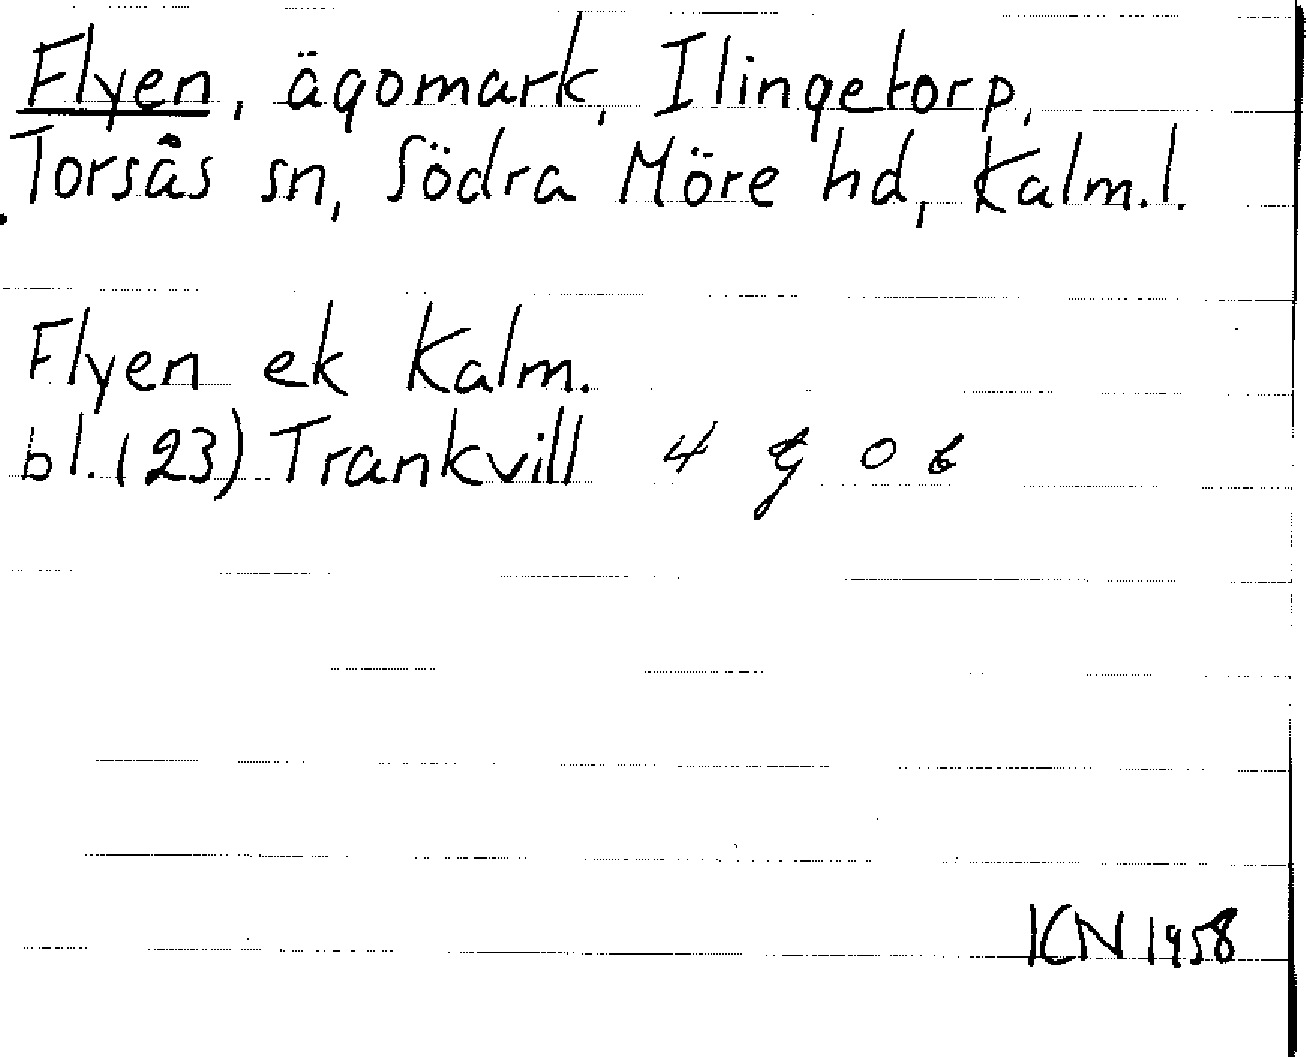 Flyen, ägomark, Ilingetorp,
Torsås sn, Södra Möre hd, Kalm.l.
Flyen ek Kalm.
bl.(23) Trankvill 4 g o b
KN 1958